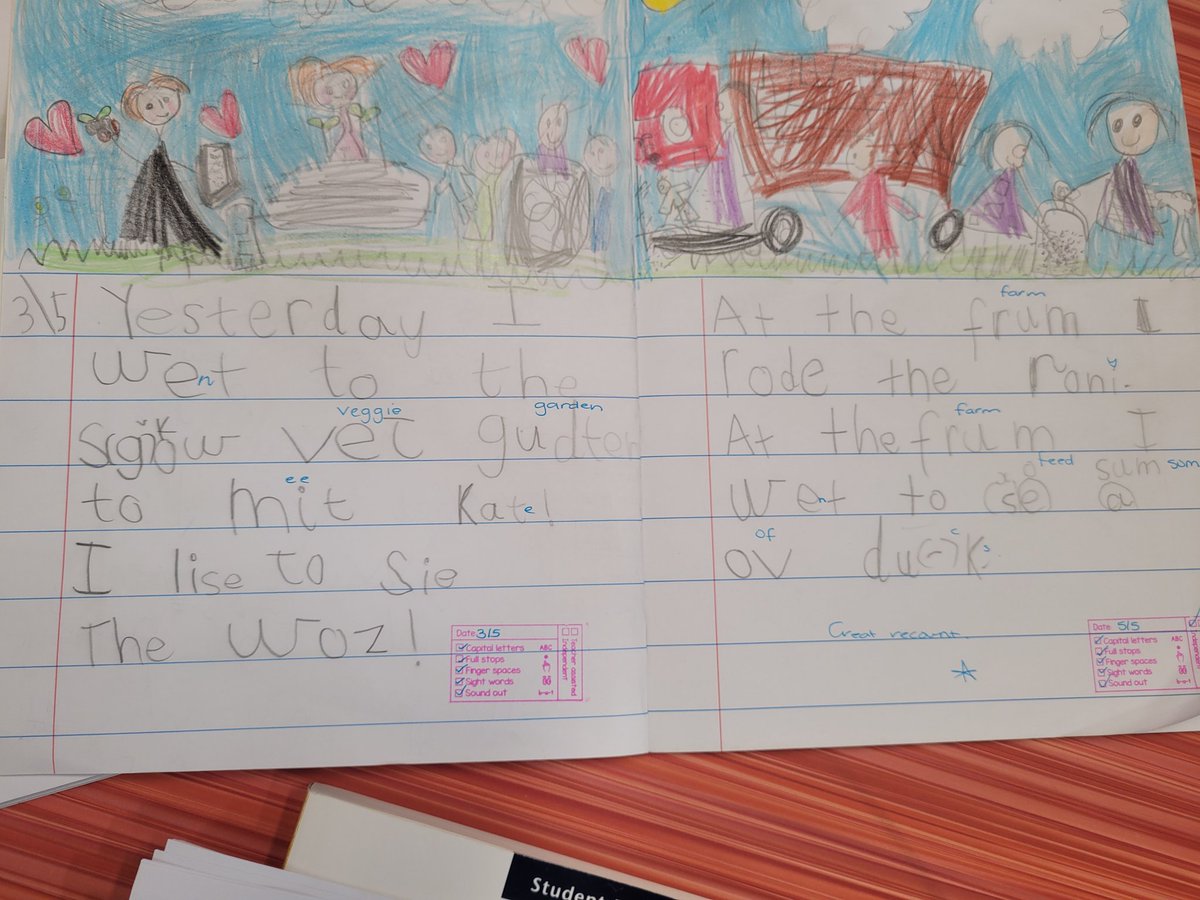 3\5 Yesterday I
went to the
veggie garden
vet gudten
ee
to mit Kate!
I lise to Sie
The Woz!
Date 3/5
Capital letters ABC
Full stops
Finger spaces
Sight words
Sound out
Teacher assisted
Independent
farm
At the frum I
rode the roni.
farm
At the frum I
feed sum som
went to (se) a
of c s
ov du(-)k.
Great recount.
Date 5/5
Capital letters ABC
Full stops
Finger spaces
Sight words
Sound out
Student